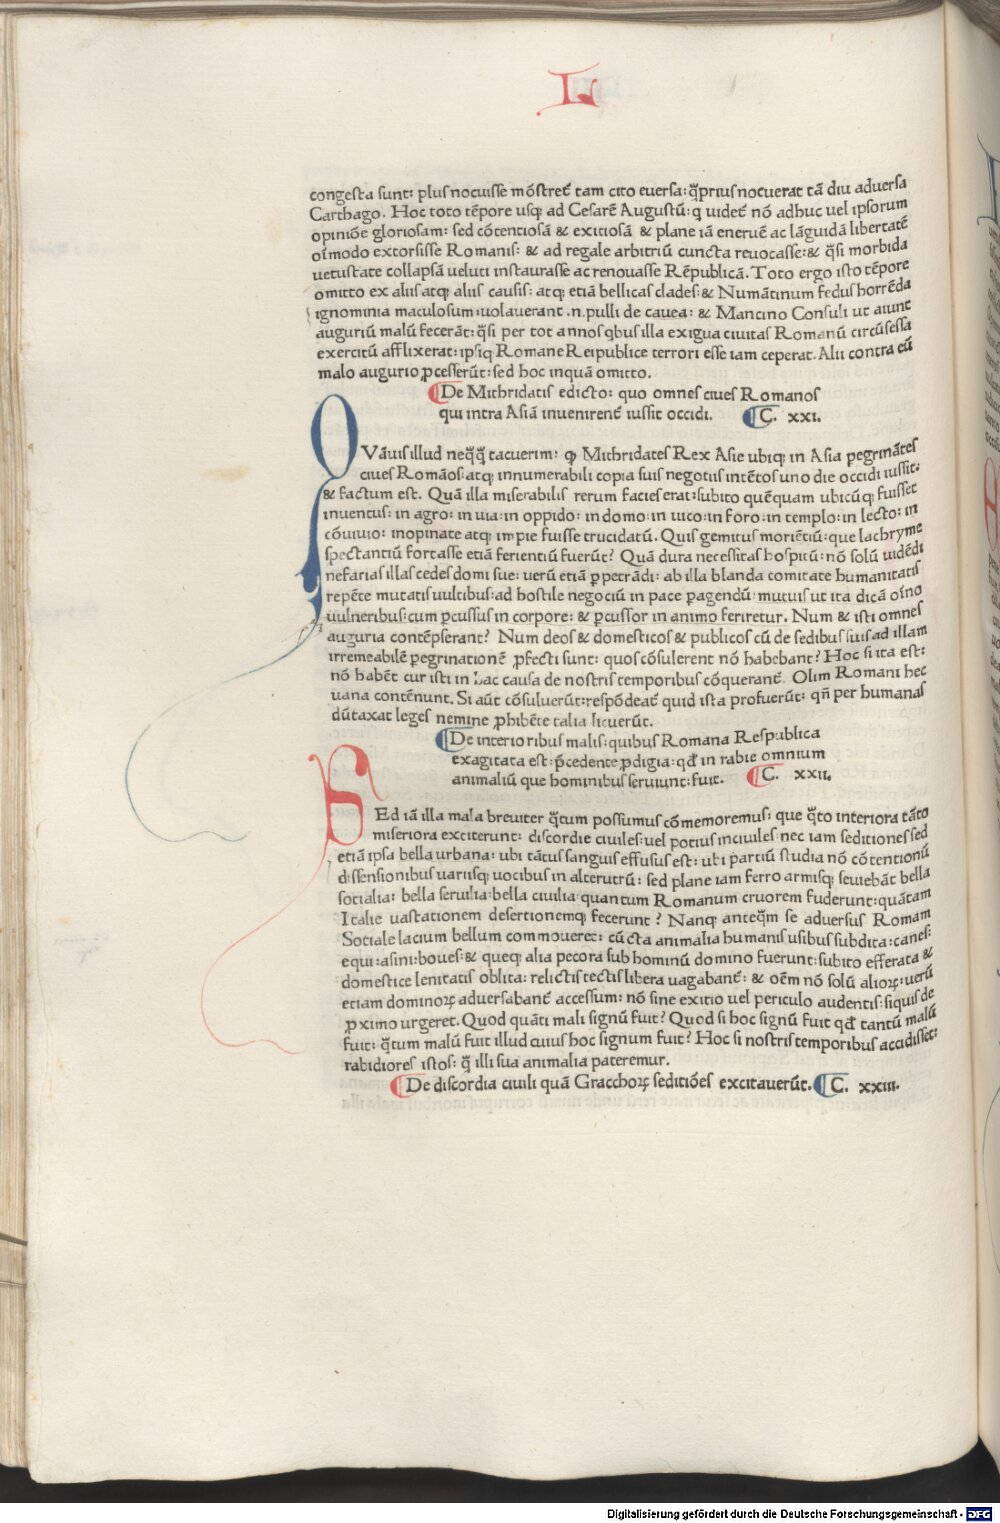 L
congesta sunt: plus nocuisse mōstret᷑ tam cito euersa: q̄prius nocuerat tā diu aduersa
Carthago. Hoc toto tēpore usq; ad Cesarē Augustū: q uidet᷑ nō adhuc uel ipsorum
opiniōe gloriosam: sed cōtentiosā & exitiosā & plane iā eneruē ac lāguidā libertatē
oīmodo extorsisse Romanis: & ad regale arbitriū cuncta reuocasse: & q̄si morbida
uetustate collapsā ueluti instaurasse ac renouasse Rēpublicā. Toto ergo isto tēpore
omitto ex aliis atq; aliis causis: atq; etiā bellicas clades: & Numātinum fedus horrēda
ignominia maculosum: uolauerant .n. pulli de cauea: & Mancino Consuli ut aiunt
auguriū malū fecerāt: q̄si per tot annos qbus illa exigua ciuitas Romanū circūsessa
exercitū afflixerat: ipsiq; Romane Reipublice terrori esse iam ceperat. Alii contra eū
malo augurio ꝓcesserūt: sed hoc inquā omitto.
De Mithridatis edicto: quo omnes ciues Romanos
qui intra Asiā inuenirent᷑ iussit occidi. C. xxi.
QVāuis illud neq̄q̄ tacuerim: ꝙ Mithridates Rex Asie ubiq; in Asia pegrināres
ciues Romāos: atq; innumerabili copia suis negotiis intētos uno die occidi iussit:
& factum est. Quā illa miserabilis rerum facies erat: subito quēquam ubicūq; fuisset
inuentus: in agro: in uia: in oppido: in domo: in uico: in foro: in templo: in lecto: in
cōuiuio: inopinate atq; impie fuisse trucidatū. Quis gemitus moriētiū: que lachryme
spectantiū fortasse etiā ferientiū fuerūt? Quā dura necessitas hospitū: nō solū uidēdi
nefarias illas cedes domi sue: uerū etiā ꝑpetrādi: ab illa blanda comitate humanitatis
repēte mutatis uultibus: ad hostile negociū in pace ꝑagendū: mutuis ut ita dicā oīno
uulneribus: cum ꝑcussus in corpore: & ꝑcussor in animo feriretur. Num & isti omnes
auguria contēpserant? Num deos & domesticos & publicos cū de sedibus suis ad illam
irremeabilē ꝑegrinationē ꝓfecti sunt: quos cōsulerent nō habebant? Hoc si ita est:
nō habēt cur isti in hac causa de nostris temporibus cōquerant᷑. Olim Romani hec
uana contēnunt. Si aūt cōsuluerūt: respōdeat᷑ quid ista profuerūt: qn̄ per humanas
dūtaxat leges nemine ꝓhibēte talia licuerūt.
De interioribus malis: quibus Romana Respublica
exagitata est: p̄cedente ꝓdigia: qđ in rabie omnium
animaliū que hominibus seruiunt: fuit. C. xxii.
SEd iā illa mala breuiter q̄tum possumus cōmemoremus: que q̄to interiora tāto
miseriora exciterunt: discordie ciuiles: uel potius inciuiles: nec iam seditiones sed
etiā ipsa bella urbana: ubi tātus sanguis effusus est: ubi partiū studia nō cōtentionū
dissensionibus uariisq; uocibus in alterutrū: sed plane iam ferro armisq; seuiebāt bella
socialia: bella seruilia: bella ciuilia: quantum Romanum cruorem fuderunt: quātam
Italie uastationem desertionemq; fecerunt? Nanq; anteq̄m se aduersus Romam
Sociale lacium bellum commoueret: cūcta animalia humanis usibus subdita: canes:
equi: asini: boues: & queq; alia pecora sub hominū domino fuerunt: subito efferata &
domestice lenitatis oblita: relictis tectis libera uagabant᷑: & oēm nō solū alioꝝ: uerū
etiam dominoꝝ aduersabant᷑ accessum: nō sine exitio uel periculo audentis: siquis de
ꝓximo urgeret. Quod quāti mali signū fuit? Quod si hoc signū fuit qđ tantū malū
fuit: q̄tum malū fuit illud cuius hoc signum fuit? Hoc si nostris temporibus accidisset:
rabidiores istos: q̄ illi sua animalia pateremur.
De discordia ciuili quā Gracchoꝝ seditiōes excitauerūt. C. xxiii.
Digitalisierung gefördert durch die Deutsche Forschungsgemeinschaft - DFG